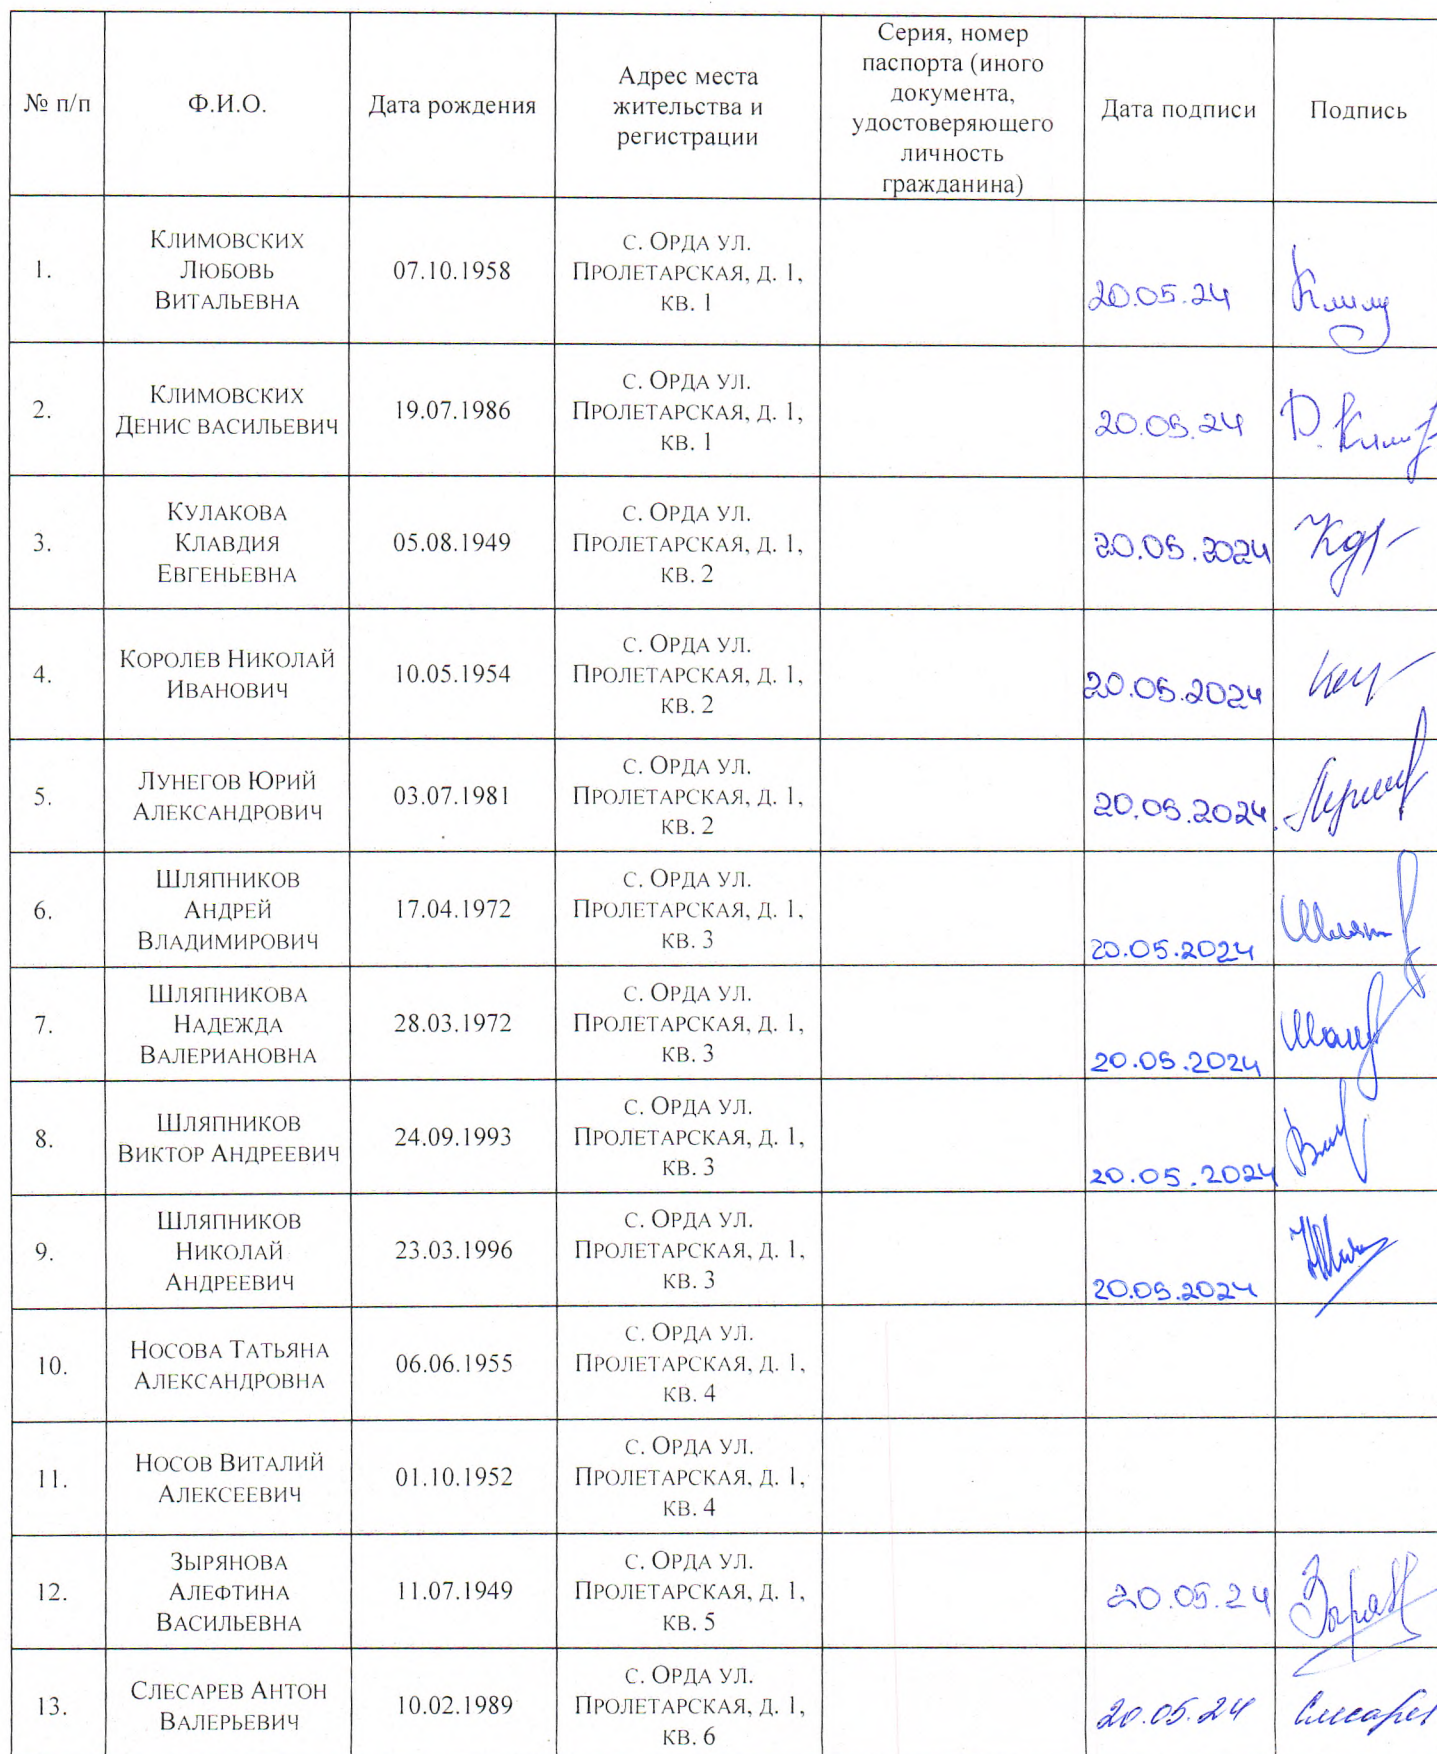 № п/п
Ф.И.О.
Дата рождения
Адрес места
жительства и
регистрации
Серия, номер
паспорта (иного
документа,
удостоверяющего
личность
гражданина)
Дата подписи
Подпись
1.
Климовских
Любовь
Витальевна
07.10.1958
с. Орда ул.
Пролетарская, д. 1,
кв. 1
20.05.24
2.
Климовских
Денис васильевич
19.07.1986
с. Орда ул.
Пролетарская, д. 1,
кв. 1
20.05.24
3.
Кулакова
Клавдия
Евгеньевна
05.08.1949
с. Орда ул.
Пролетарская, д. 1,
кв. 2
20.05.2024
4.
Королев Николай
Иванович
10.05.1954
с. Орда ул.
Пролетарская, д. 1,
кв. 2
20.05.2024
5.
Лунегов Юрий
Александрович
03.07.1981
с. Орда ул.
Пролетарская, д. 1,
кв. 2
20.05.2024
6.
Шляпников
Андрей
Владимирович
17.04.1972
с. Орда ул.
Пролетарская, д. 1,
кв. 3
20.05.2024
7.
Шляпникова
Надежда
Валериановна
28.03.1972
с. Орда ул.
Пролетарская, д. 1,
кв. 3
20.05.2024
8.
Шляпников
Виктор Андреевич
24.09.1993
с. Орда ул.
Пролетарская, д. 1,
кв. 3
20.05.2024
9.
Шляпников
Николай
Андреевич
23.03.1996
с. Орда ул.
Пролетарская, д. 1,
кв. 3
20.05.2024
10.
Носова Татьяна
Александровна
06.06.1955
с. Орда ул.
Пролетарская, д. 1,
кв. 4
11.
Носов Виталий
Алексеевич
01.10.1952
с. Орда ул.
Пролетарская, д. 1,
кв. 4
12.
Зырянова
Алефтина
Васильевна
11.07.1949
с. Орда ул.
Пролетарская, д. 1,
кв. 5
20.05.24
13.
Слесарев Антон
Валерьевич
10.02.1989
с. Орда ул.
Пролетарская, д. 1,
кв. 6
20.05.24